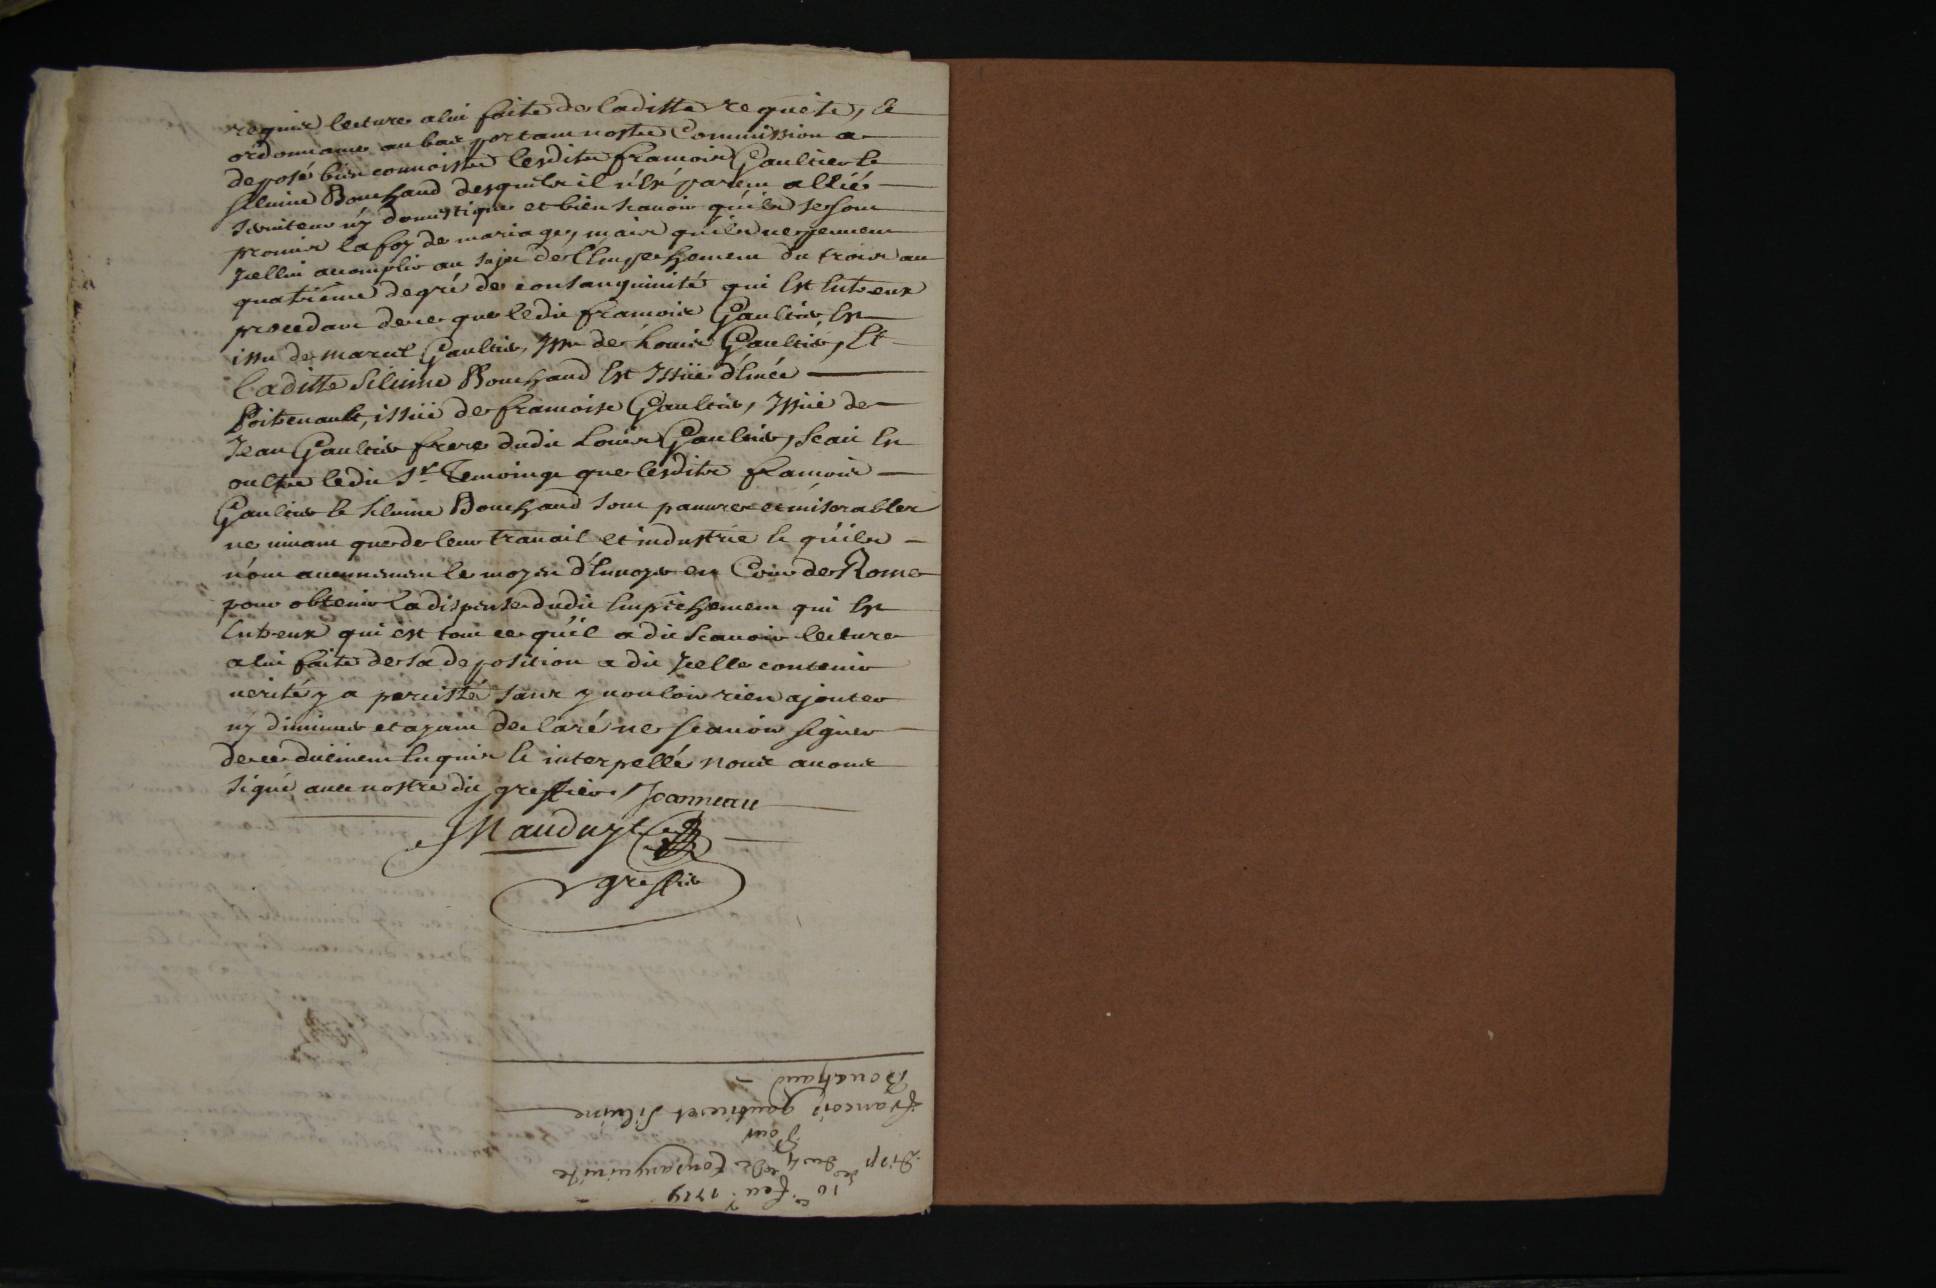 requis lecture a lui faite de laditte requete, et
ordonnance au bas portant nostre Commission a
deposé bien connoistre lesdits francois Gaultier et
silvine Bouchaud desquels il n'est parent allié
serviteur ny domestique et bien scavoir qu'ils se sont
promis la foy de mariage, mais qu'ils ne peuvent
Icelluy accomplir au sujet de l'Empechement du trois au
quatriéme degré de consanguinité qui Est Entr'eux
procedant de ce que ledit francois Gaultier Est
issu de marcel Gaultier, Issu de Louis Gaultier, Et
laditte silvine Bouchaud Est Issüe d'Emée
Poitevault, issüe de francoise Gaultier, Issüe de
Jean Gaultier frere dudit Louis Gaultier, scait En
oultre ledit Sr. Temoing que lesdits francois
Gaultier et silvine Bouchaud sont pauvres et misérables
ne vivant que de leur travail et industrie et qu'ils
n'ont aucunement le moyen d'Envoyer en Cour de Rome
pour obtenir la dispense dudit Empéchement qui Est
Entreux qui est tout ce qu'il a dit scavoir lecture
a lui faite de sa deposition a dit Icelle contenir
verité y a persisté sans y vouloir rien ajouter
ny diminuer et ayant declaré ne scavoir signer
de ce duement Enquis et interpellé nous avons
signé avec nostre dit greffier, Joanneau
Mauduyt
greffier
10e feu. 1719
Disp. du 3 au 4 de Consanguinité
Pour
Francois gaultier et Silvine
Bouchaud